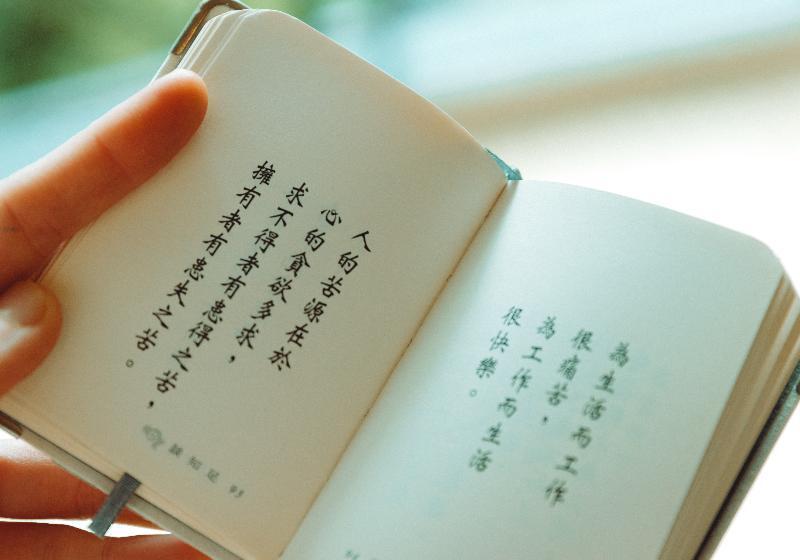 為生活而工作
很痛苦，
為工作而生活
很快樂。
人的苦源在於
心的貪欲多求，
求不得者有患得之苦，
擁有者有患失之苦。
談知足 93